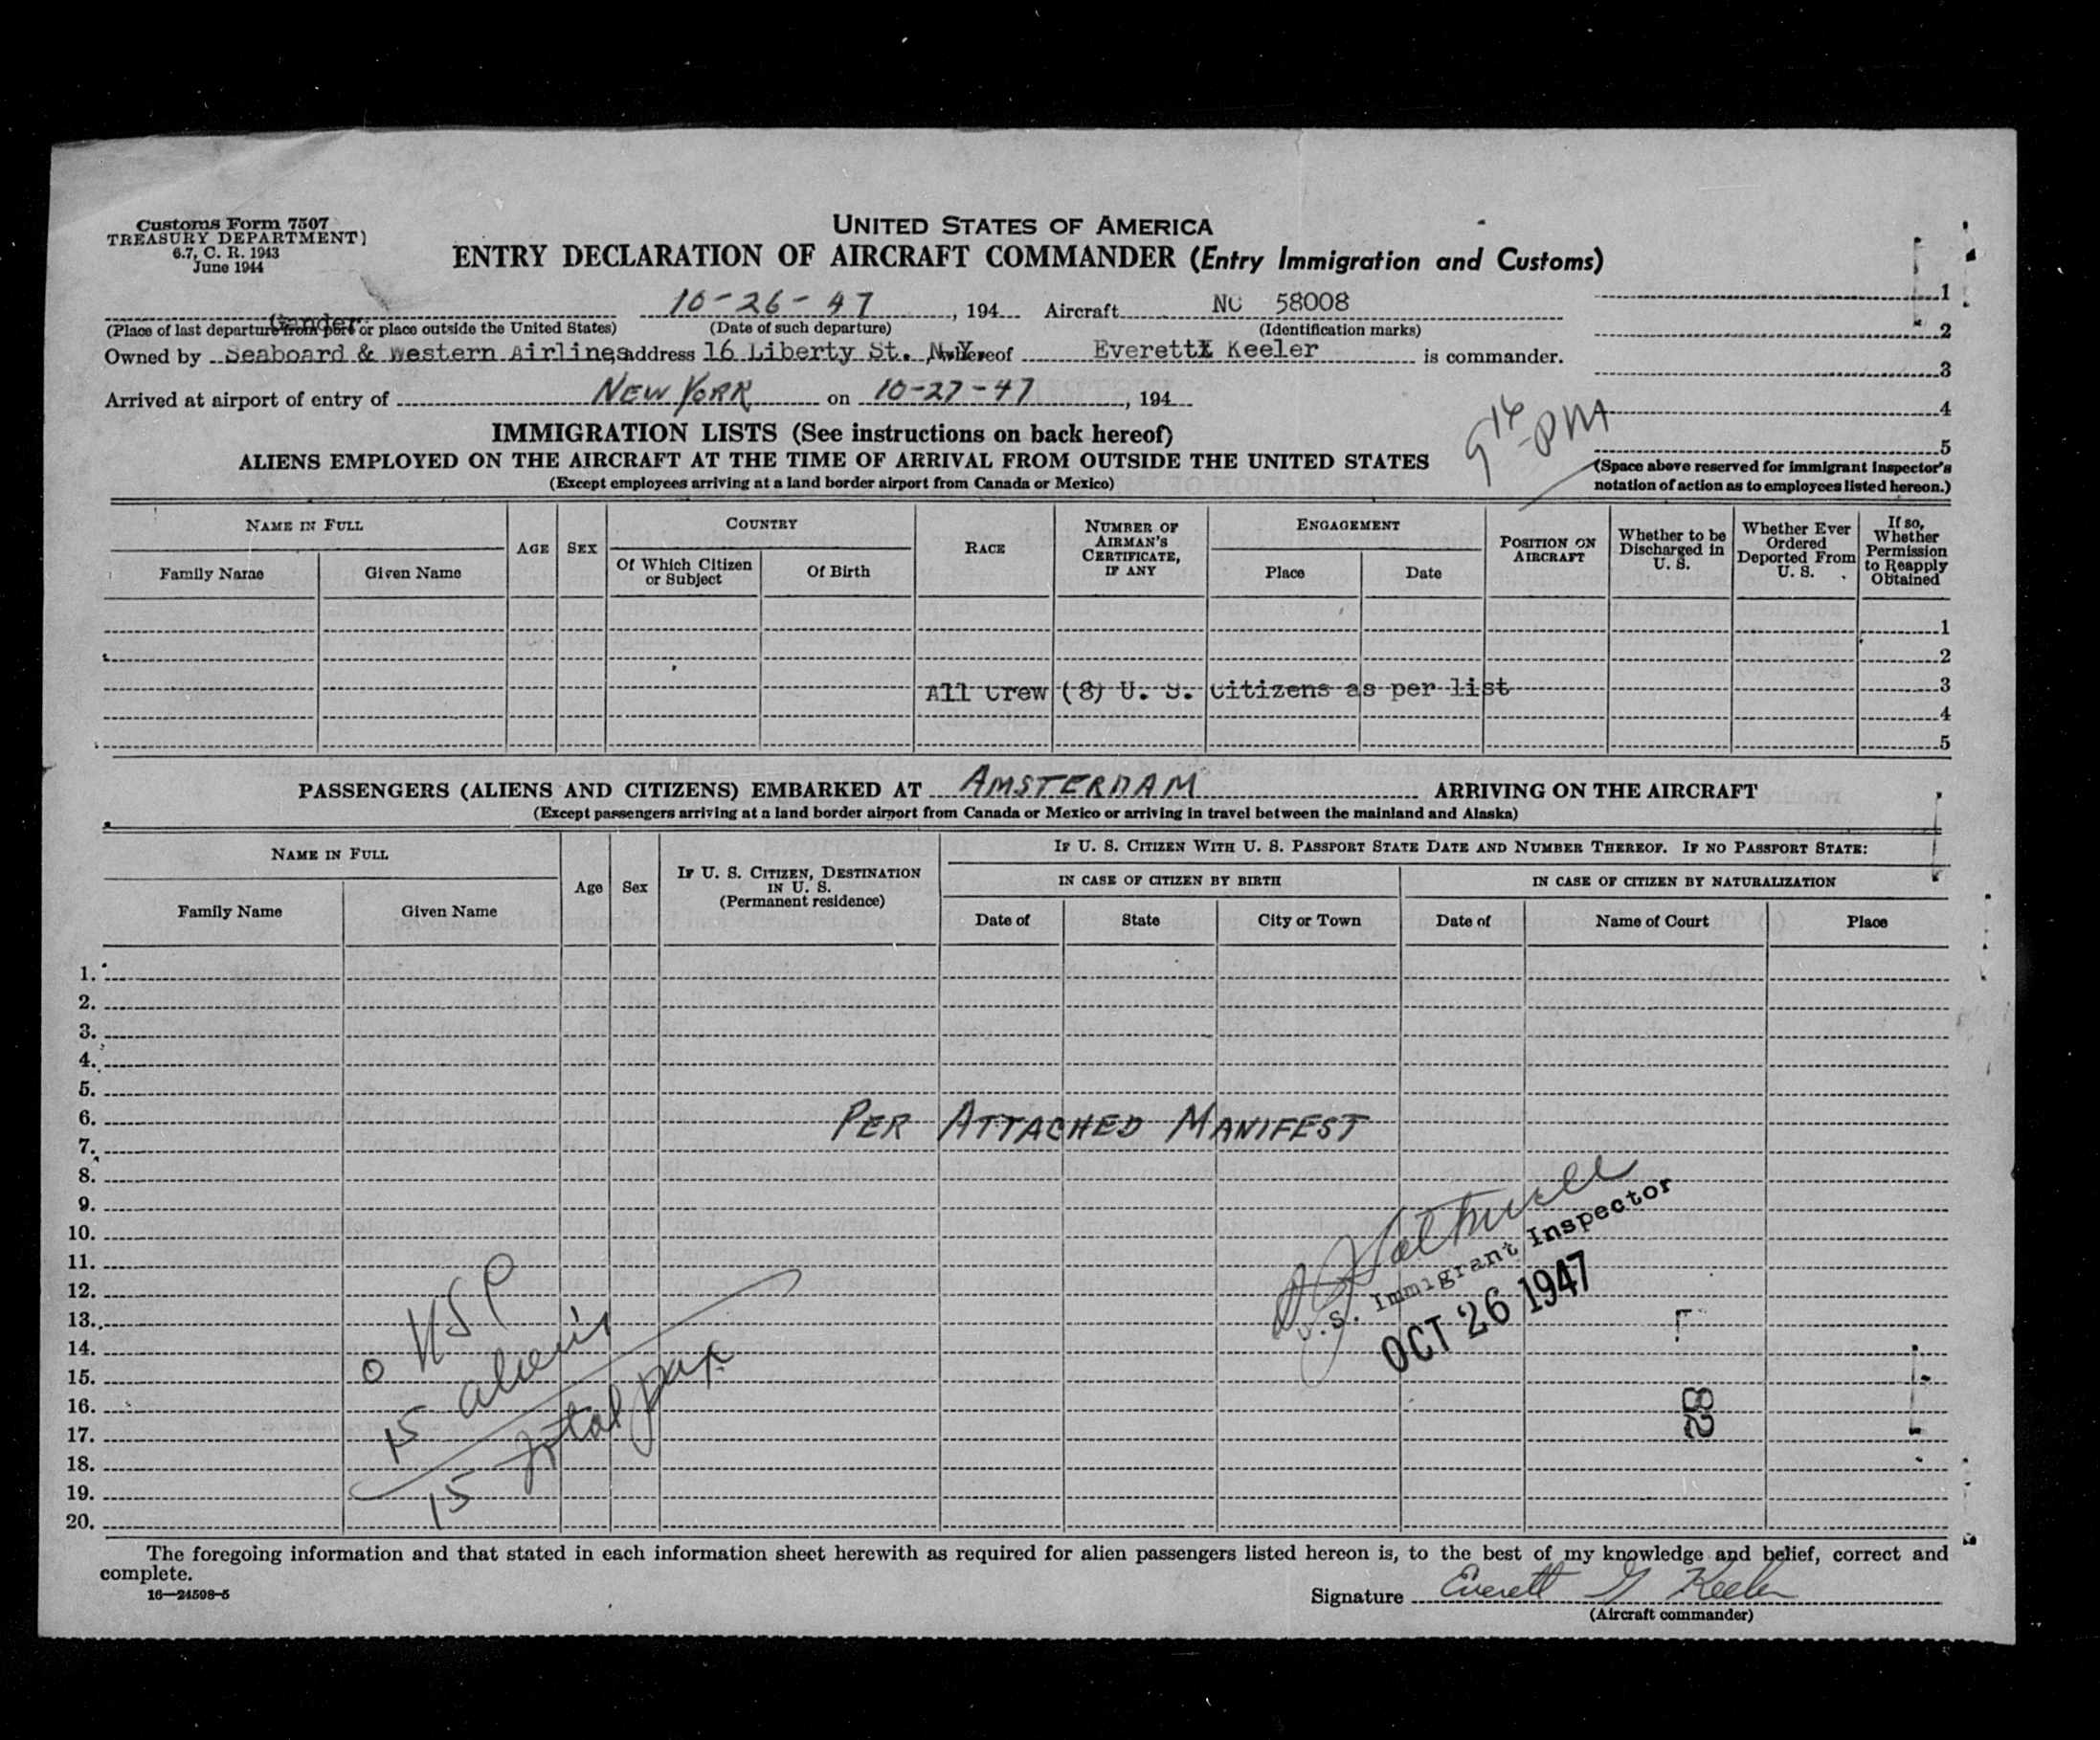 Customs Form 7507
TREASURY DEPARTMENT)
6.7, C. R. 1943
June 1944
UNITED STATES OF AMERICA
ENTRY DECLARATION OF AIRCRAFT COMMANDER (Entry Immigration and Customs)
Gander 10-26-47, 194 Aircraft NC 58008
(Place of last departure from port or place outside the United States) (Date of such departure) (Identification marks)
Owned by Seaboard & Western Airlines address 16 Liberty St., N.Y. whereof Everett Keeler is commander.
Arrived at airport of entry of NEW YORK on 10-27-47, 194
1
2
3
4
5
(Space above reserved for immigrant inspector's
notation of action as to employees listed hereon.)
9 16 PM
IMMIGRATION LISTS (See instructions on back hereof)
ALIENS EMPLOYED ON THE AIRCRAFT AT THE TIME OF ARRIVAL FROM OUTSIDE THE UNITED STATES
(Except employees arriving at a land border airport from Canada or Mexico)
NAME IN FULL
Family Name
Given Name
AGE
SEX
COUNTRY
Of Which Citizen or Subject
Of Birth
RACE
NUMBER OF AIRMAN'S CERTIFICATE, IF ANY
ENGAGEMENT
Place
Date
POSITION ON AIRCRAFT
Whether to be Discharged in U. S.
Whether Ever Ordered Deported From U. S.
If so, Whether Permission to Reapply Obtained
1
2
All Crew (8) U. S. Citizens as per list 3
4
5
PASSENGERS (ALIENS AND CITIZENS) EMBARKED AT AMSTERDAM ARRIVING ON THE AIRCRAFT
(Except passengers arriving at a land border airport from Canada or Mexico or arriving in travel between the mainland and Alaska)
NAME IN FULL
Family Name
Given Name
Age
Sex
IF U. S. CITIZEN, DESTINATION IN U. S.
(Permanent residence)
IF U. S. CITIZEN WITH U. S. PASSPORT STATE DATE AND NUMBER THEREOF. IF NO PASSPORT STATE:
IN CASE OF CITIZEN BY BIRTH
IN CASE OF CITIZEN BY NATURALIZATION
Date of
State
City or Town
Date of
Name of Court
Place
1.
2.
3.
4.
5.
6.
PER ATTACHED MANIFEST
7.
8.
9.
10.
11.
12.
13.
14.
15.
16.
17.
18.
19.
20.
U.S. Immigrant Inspector
OCT 26 1947
28
0 USP
15 aliens
15 total pax
The foregoing information and that stated in each information sheet herewith as required for alien passengers listed hereon is, to the best of my knowledge and belief, correct and
complete.
16—24598-5
Signature Everett G Keeler
(Aircraft commander)